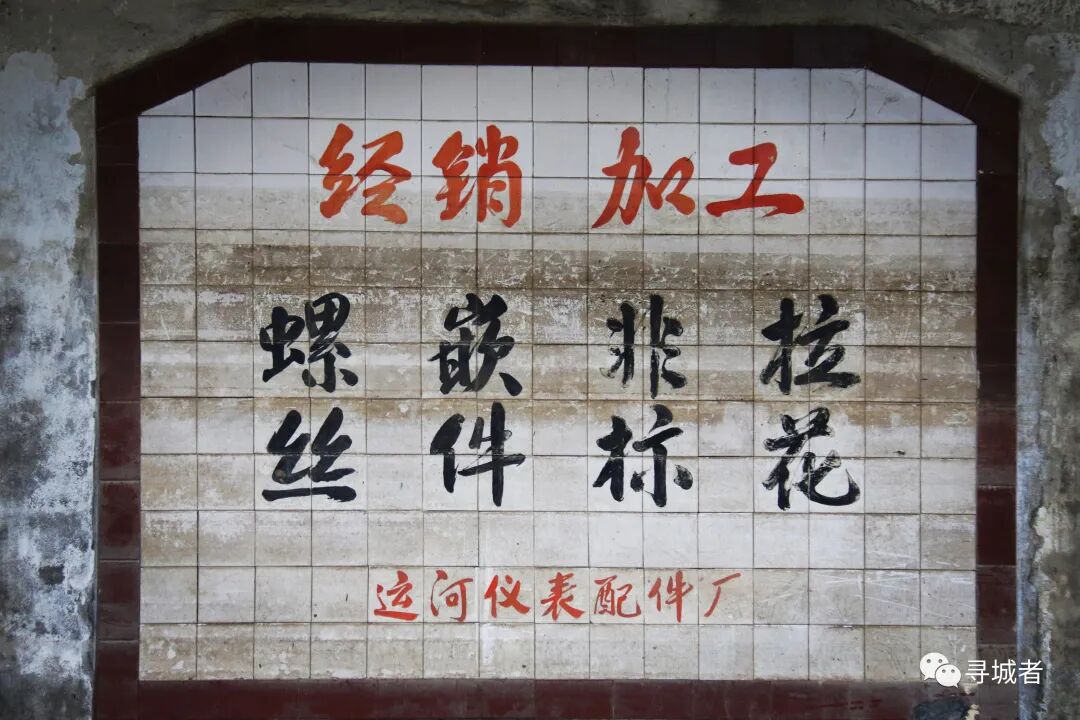 经销 加工
螺丝 嵌件 非标 拉花
运河仪表配件厂
寻城者